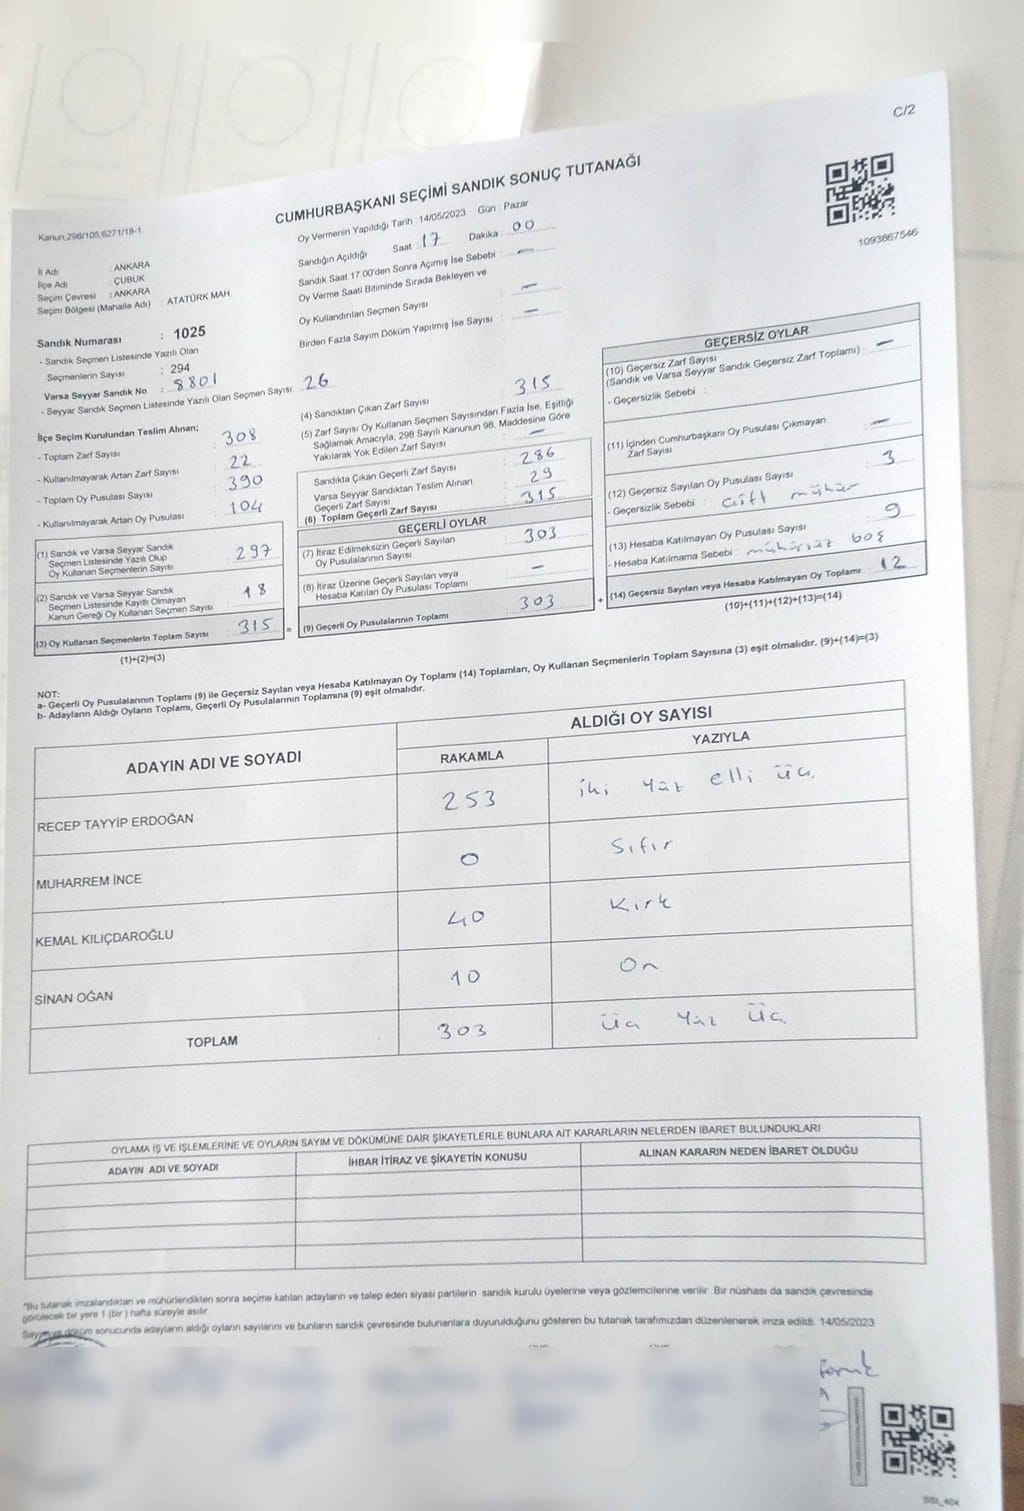 C/2
CUMHURBAŞKANI SEÇİMİ SANDIK SONUÇ TUTANAĞI
1093867546
Kanun,298/105,6271/18-1
İl Adı : ANKARA
İlçe Adı : ÇUBUK
Seçim Çevresi : ANKARA
Seçim Bölgesi (Mahalle Adı) : ATATÜRK MAH.
Oy Vermenin Yapıldığı Tarih : 14/05/2023 Gün : Pazar
Sandığın Açıldığı Saat 17 Dakika : 00
Sandık Saat 17:00'den Sonra Açımış İse Sebebi : —
Oy Verme Saati Bitiminde Sırada Bekleyen ve
Oy Kullandırılan Seçmen Sayısı : —
Birden Fazla Sayım Döküm Yapılmış İse Sayısı : —
Sandık Numarası : 1025
- Sandık Seçmen Listesinde Yazılı Olan
Seçmenlerin Sayısı : 294
Varsa Seyyar Sandık No : 8801
- Seyyar Sandık Seçmen Listesinde Yazılı Olan Seçmen Sayısı: 26
İlçe Seçim Kurulundan Teslim Alınan;
- Toplam Zarf Sayısı : 308
- Kullanılmayarak Artan Zarf Sayısı : 22
- Toplam Oy Pusulası Sayısı : 390
- Kullanılmayarak Artan Oy Pusulası : 104
(1) Sandık ve Varsa Seyyar Sandık
Seçmen Listesinde Yazılı Olup
Oy Kullanan Seçmenlerin Sayısı : 297
(2) Sandık ve Varsa Seyyar Sandık
Seçmen Listesinde Kayıtlı Olmayan
Kanun Gereği Oy Kullanan Seçmen Sayısı : 18
(3) Oy Kullanan Seçmenlerin Toplam Sayısı : 315
(1)+(2)=(3)
(4) Sandıktan Çıkan Zarf Sayısı : 315
(5) Zarf Sayısı Oy Kullanan Seçmen Sayısından Fazla İse, Eşitliği
Sağlamak Amacıyla, 298 Sayılı Kanunun 98. Maddesine Göre
Yakılarak Yok Edilen Zarf Sayısı : —
Sandıkta Çıkan Geçerli Zarf Sayısı : 286
Varsa Seyyar Sandıktan Teslim Alınan
Geçerli Zarf Sayısı : 29
(6) Toplam Geçerli Zarf Sayısı : 315
GEÇERLİ OYLAR
(7) İtiraz Edilmeksizin Geçerli Sayılan
Oy Pusulalarının Sayısı : 303
(8) İtiraz Üzerine Geçerli Sayılan veya
Hesaba Katılan Oy Pusulası Toplamı : —
= (9) Geçerli Oy Pusulalarının Toplamı : 303
GEÇERSİZ OYLAR
(10) Geçersiz Zarf Sayısı
(Sandık ve Varsa Seyyar Sandık Geçersiz Zarf Toplamı) : —
- Geçersizlik Sebebi :
(11) İçinden Cumhurbaşkanı Oy Pusulası Çıkmayan
Zarf Sayısı : —
(12) Geçersiz Sayılan Oy Pusulası Sayısı : 3
- Geçersizlik Sebebi : çift mühür
(13) Hesaba Katılmayan Oy Pusulası Sayısı : 9
- Hesaba Katılmama Sebebi : mühürsüz boş
+ (14) Geçersiz Sayılan veya Hesaba Katılmayan Oy Toplamı : 12
(10)+(11)+(12)+(13)=(14)
NOT:
a- Geçerli Oy Pusulalarının Toplamı (9) ile Geçersiz Sayılan veya Hesaba Katılmayan Oy Toplamı (14) Toplamları, Oy Kullanan Seçmenlerin Toplam Sayısına (3) eşit olmalıdır. (9)+(14)=(3)
b- Adayların Aldığı Oyların Toplamı, Geçerli Oy Pusulalarının Toplamına (9) eşit olmalıdır.
ADAYIN ADI VE SOYADI ALDIĞI OY SAYISI
RAKAMLA YAZIYLA
RECEP TAYYİP ERDOĞAN 253 iki yüz elli üç
MUHARREM İNCE 0 Sıfır
KEMAL KILIÇDAROĞLU 40 Kırk
SİNAN OĞAN 10 On
TOPLAM 303 üç yüz üç
OYLAMA İŞ VE İŞLEMLERİNE VE OYLARIN SAYIM VE DÖKÜMÜNE DAİR ŞİKAYETLERLE BUNLARA AİT KARARLARIN NELERDEN İBARET BULUNDUKLARI
ADAYIN ADI VE SOYADI İHBAR İTİRAZ VE ŞİKAYETİN KONUSU ALINAN KARARIN NEDEN İBARET OLDUĞU
*Bu tutanak imzalandıktan ve mühürlendikten sonra seçime katılan adayların ve talep eden siyasi partilerin sandık kurulu üyelerine veya gözlemcilerine verilir. Bir nüshası da sandık çevresinde
görülecek bir yere 1 (bir) hafta süreyle asılır.
Sayım ve döküm sonucunda adayların aldığı oyların sayılarını ve bunların sandık çevresinde bulunanlara duyurulduğunu gösteren bu tutanak tarafımızdan düzenlenerek imza edildi. 14/05/2023